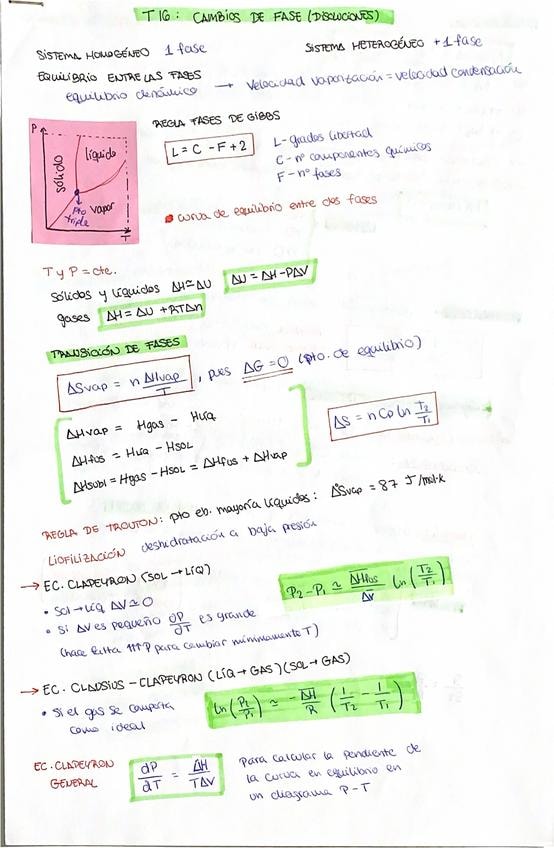 T16: CAMBIOS DE FASE (DISOLUCIONES)
SISTEMA HOMOGÉNEO 1 fase
SISTEMA HETEROGÉNEO +1 fase
EQUILIBRIO ENTRE LAS FASES
equilibrio dinámico → velocidad vaporización = velocidad condensación
P
sólido
líquido
Pto triple
vapor
T
REGLA FASES DE GIBBS
L = C - F + 2
L - grados libertad
C - nº componentes químicos
F - nº fases
curva de equilibrio entre dos fases
T y P = cte.
sólidos y líquidos ΔH ≃ ΔU
ΔU = ΔH - PΔV
gases ΔH = ΔU + RTΔn
TRANSICIÓN DE FASES
ΔSvap = n ΔHvap / T , pues ΔG = 0 (pto. de equilibrio)
ΔHvap = Hgas - Hliq
ΔHfus = Hliq - Hsol
ΔHsubl = Hgas - Hsol = ΔHfus + ΔHvap
ΔS = n Cp ln T2/T1
REGLA DE TROUTON: pto eb. mayoría líquidos: Δ°Svap = 87 J/mol·K
LIOFILIZACIÓN deshidratación a baja presión
→ EC. CLAPEYRON (SOL → LÍQ)
• Sol → Líq ΔV ≃ 0
• Si ΔV es pequeño dP/dT es grande
(hace falta ↑↑↑P para cambiar mínimamente T)
P2 - P1 ≃ ΔHfus/ΔV ln (T2/T1)
→ EC. CLAUSIUS - CLAPEYRON (LÍQ → GAS) (SOL → GAS)
• Si el gas se comporta
como ideal
ln (P2/P1) ≃ - ΔH/R (1/T2 - 1/T1)
EC. CLAPEYRON
GENERAL
dP/dT = ΔH/TΔV
Para calcular la pendiente de
la curva en equilibrio en
un diagrama P - T